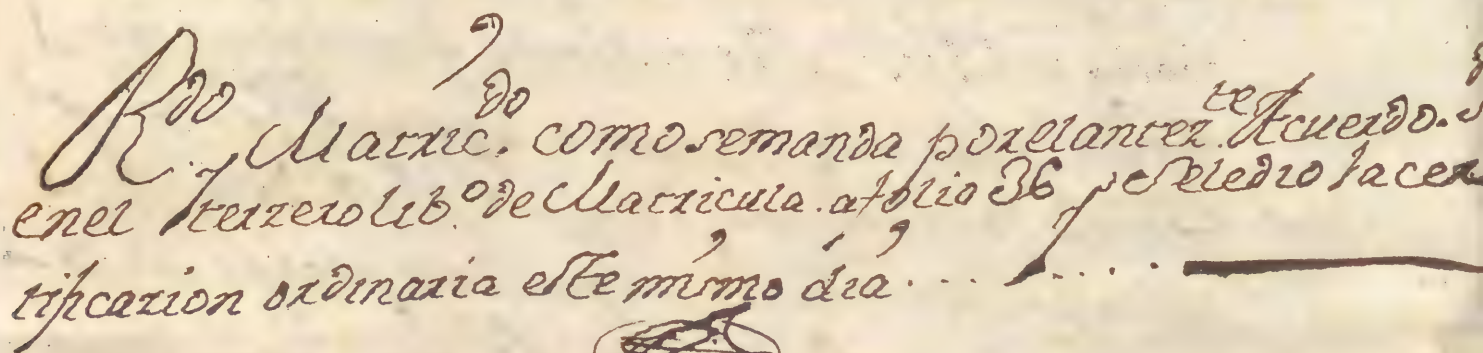 R.do y Matric.do como se manda por el antez.te Acuerdo.
en el terzero lib.o de Matricula. a folio 36 y se le dio la cer
tificazion ordinaria este mismo dia....